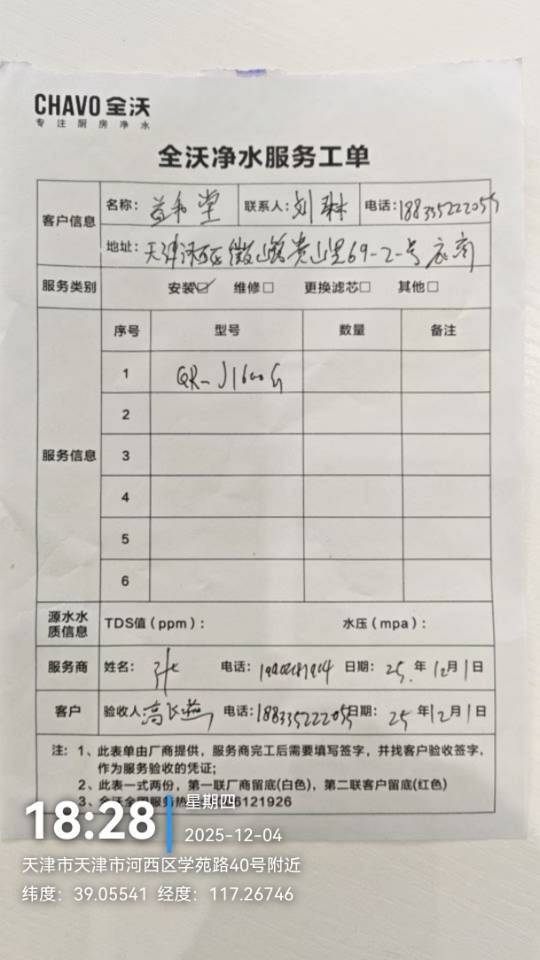 CHAVO 全沃
专注厨房净水
全沃净水服务工单
客户信息
名称: 益和堂 联系人: 刘琳 电话: 18833522205
地址: 天津河西区微山路贵山里69-2-号底商
服务类别 安装☑ 维修□ 更换滤芯□ 其他□
服务信息
序号 型号 数量 备注
1 QR-J1600G
2
3
4
5
6
源水水质信息 TDS值(ppm): 水压(mpa):
服务商 姓名: 张 电话: 日期: 25年12月1日
客户 验收人 高 电话: 日期: 25年12月1日
注: 1、此表单由厂商提供,服务商完工后需要填写签字,并找客户验收签字,
作为服务验收的凭证;
2、此表一式两份,第一联厂商留底(白色),第二联客户留底(红色)
3、全沃全国服务热 6121926
18:28
星期四
2025-12-04
天津市天津市河西区学苑路40号附近
纬度: 39.05541 经度: 117.26746